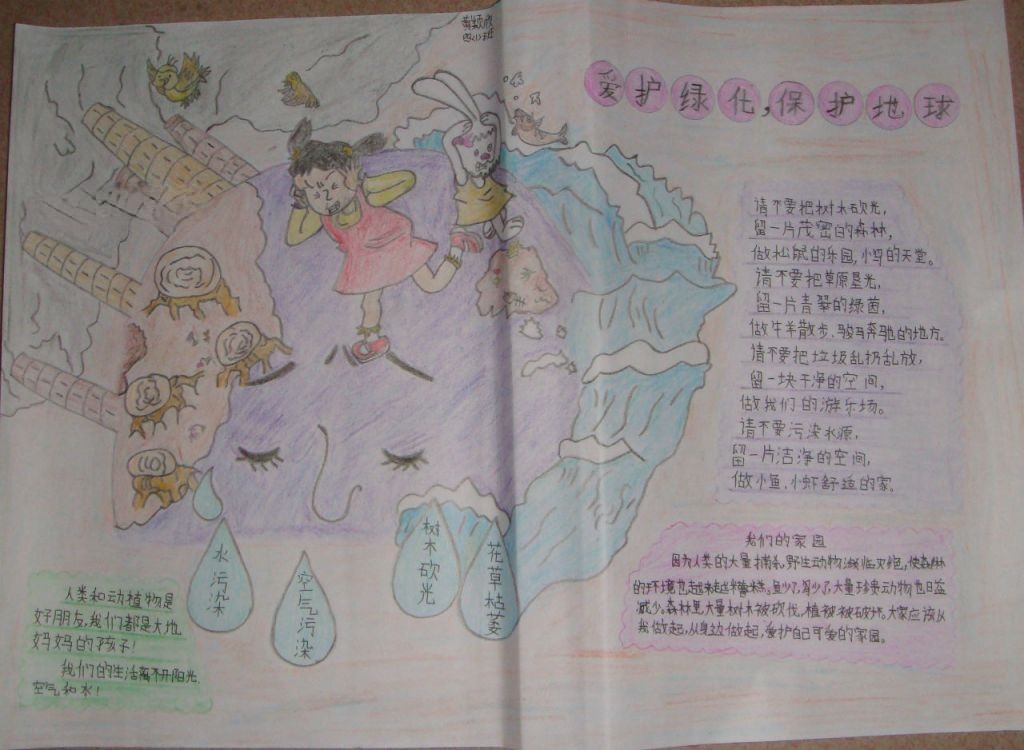 四(1)班
爱护绿化,保护地球
请不要把树木砍光,
留一片茂密的森林,
做松鼠的乐园,小鸟的天堂。
请不要把草原垦光,
留一片青翠的绿茵,
做牛羊散步、骏马奔驰的地方。
请不要把垃圾乱扔乱放,
留一块干净的空间,
做我们的游乐场。
请不要污染水源,
留一片洁净的空间,
做小鱼、小虾舒适的家。
水污染
空气污染
树木砍光
花草枯萎
人类和动植物是
好朋友,我们都是大地
妈妈的孩子!
我们的生活离不开阳光、
空气和水!
我们的家园
因为人类的大量捕杀,野生动物濒临灭绝,使森林
的环境也越来越糟糕。鱼少了,鸟少了,大量珍贵动物也日益
减少。森林里大量树木被砍伐,植被被破坏。大家应该从
我做起,从身边做起,爱护自己可爱的家园。